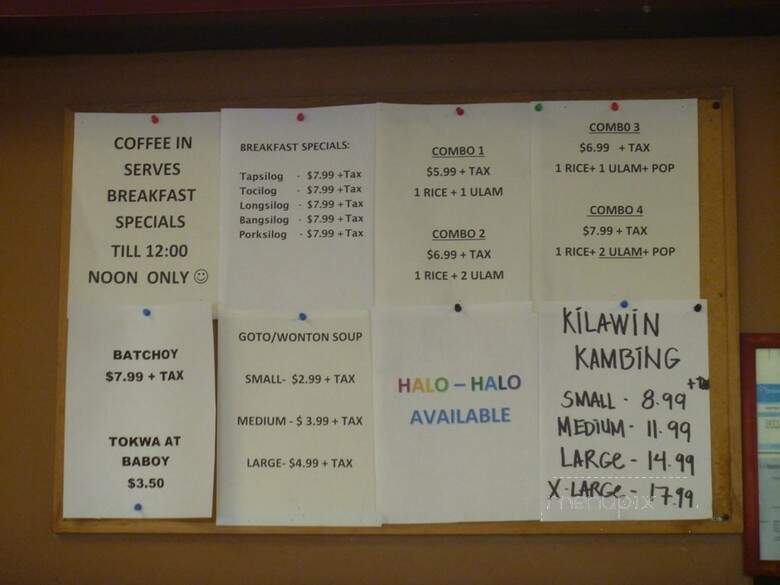 COFFEE IN
SERVES
BREAKFAST
SPECIALS
TILL 12:00
NOON ONLY ☺
BREAKFAST SPECIALS:
Tapsilog - $7.99 +Tax
Tocilog - $7.99 +Tax
Longsilog - $7.99 +Tax
Bangsilog - $7.99 +Tax
Porksilog - $7.99 +Tax
COMBO 1
$5.99 + TAX
1 RICE + 1 ULAM
COMBO 2
$6.99 + TAX
1 RICE + 2 ULAM
COMBO 3
$6.99 + TAX
1 RICE+ 1 ULAM+ POP
COMBO 4
$7.99 + TAX
1 RICE+ 2 ULAM+ POP
BATCHOY
$7.99 + TAX
TOKWA AT
BABOY
$3.50
GOTO/WONTON SOUP
SMALL- $2.99 + TAX
MEDIUM - $ 3.99 + TAX
LARGE- $4.99 + TAX
HALO – HALO
AVAILABLE
KILAWIN
KAMBING
SMALL - 8.99
MEDIUM - 11.99
LARGE - 14.99
X-LARGE - 17.99
menupix